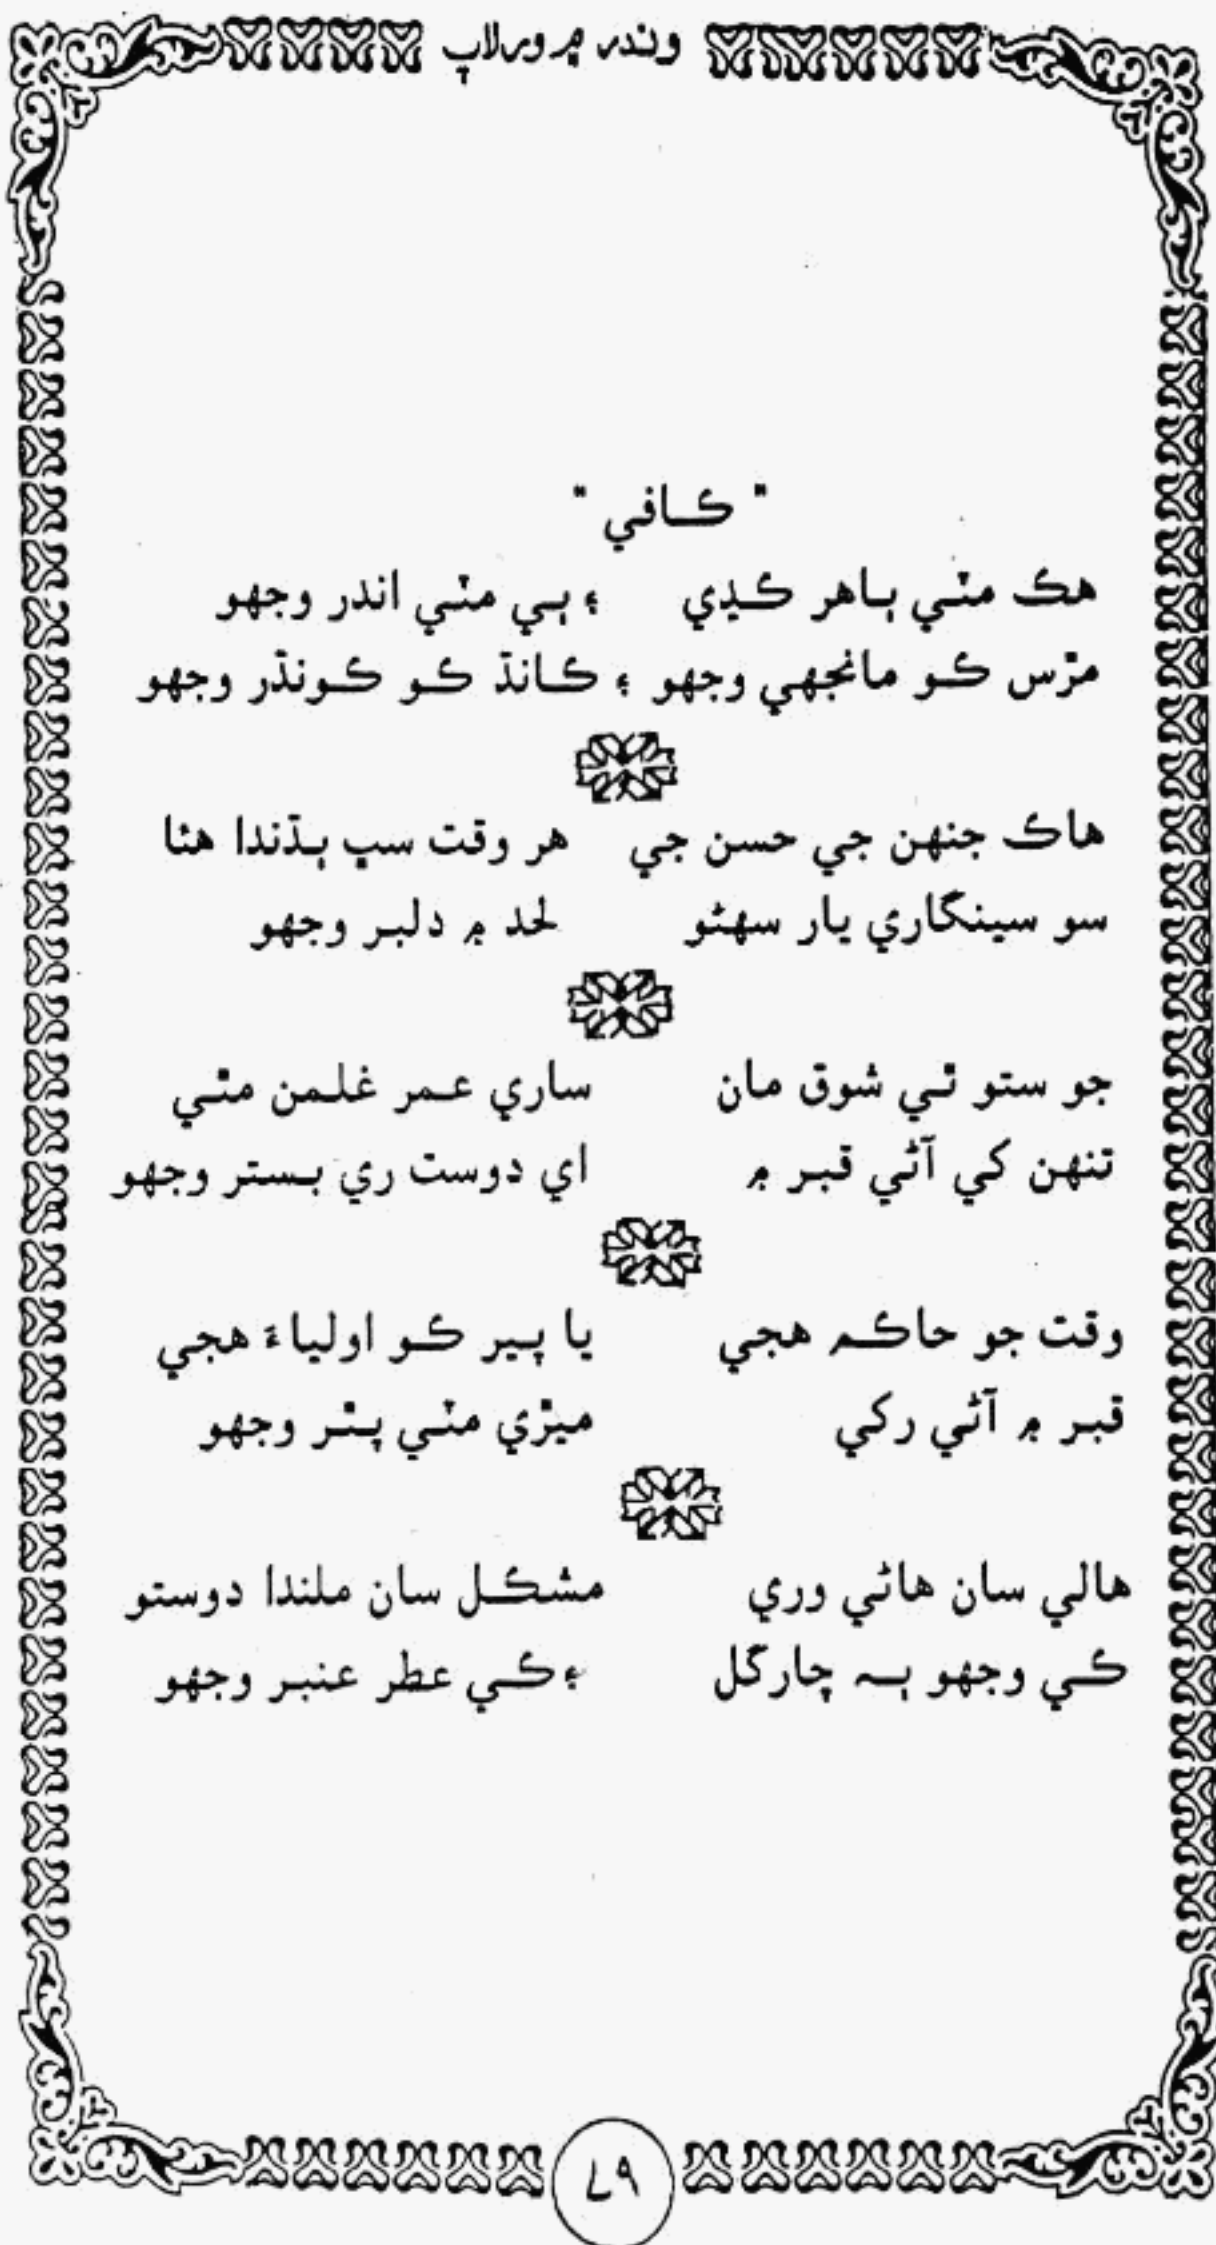 وندر ۾ ورلاپ
" ڪافي "
هڪ مٽي ٻاهر ڪڍي ۽ ٻي مٽي اندر وجهو
مڙس ڪو مانجهي وجهو ۽ ڪانڌ ڪو ڪونڌر وجهو
هاڪ جنهن جي حسن جي هر وقت سڀ ٻڌندا هئا
سو سينگاري يار سهڻو لحد ۾ دلبر وجهو
جو ستو ٿي شوق مان ساري عمر غلمن مٿي
تنهن کي آڻي قبر ۾ اي دوست ري بستر وجهو
وقت جو حاڪم هجي يا پير ڪو اولياءَ هجي
قبر ۾ آڻي رکي ميڙي مٽي پٿر وجهو
هالي سان هاڻي وري مشڪل سان ملندا دوستو
ڪي وجهو ٻہ چار گل ۽ ڪي عطر عنبر وجهو
٧٩